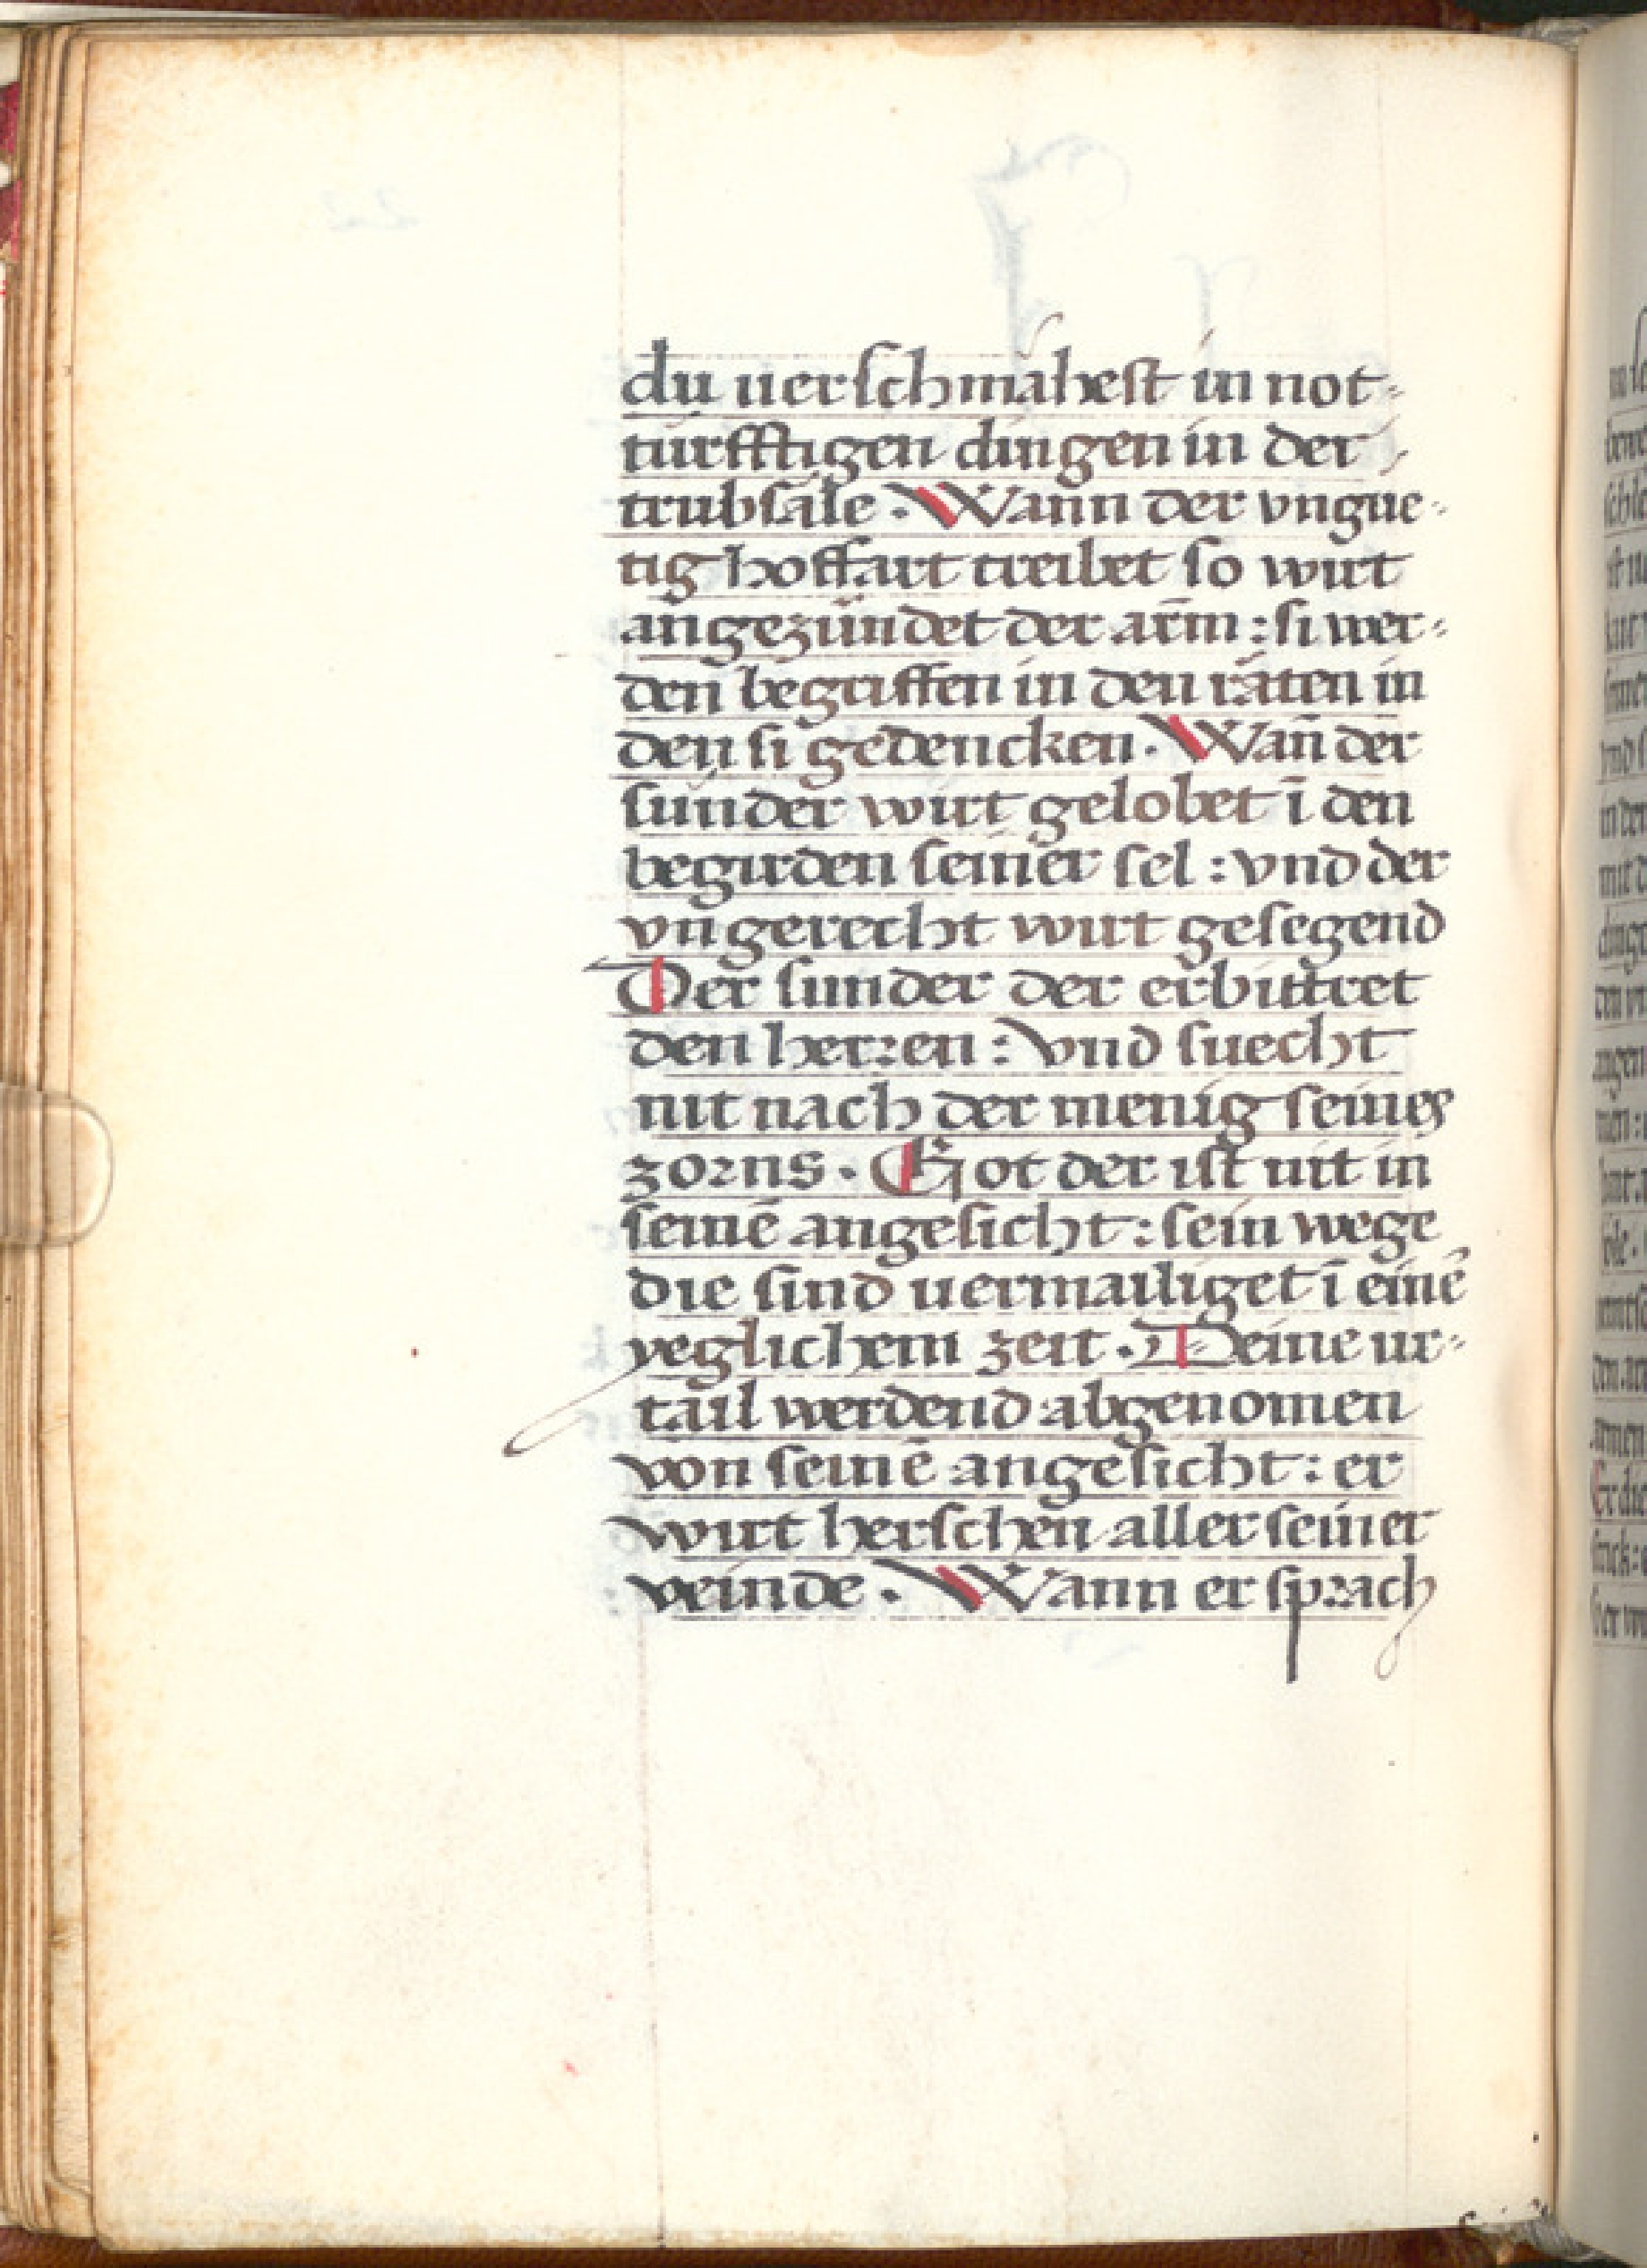 du uerschmahest in not=
turfftigen dingen in der
trubsale · Wann der vngue=
tig hoffart treibet so wirt
angezündet der arm : si wer=
den begriffen in den räten in
den si gedencken · Wan̄ der
sunder wirt gelobet ī den
begirden seiner sel : vnd der
vngerecht wirt gesegend
Der sunder der erbittret
den herren : vnd suecht
nit nach der menig seines
zorns · Got der ist nit in
seinē angesicht : sein wege
die sind uermailiget ī einē
yeglichem zeit · Deine ur=
tail werdend abgenomen
von seinē angesicht : er
wirt herschen aller seiner
veinde · Wann er sprach